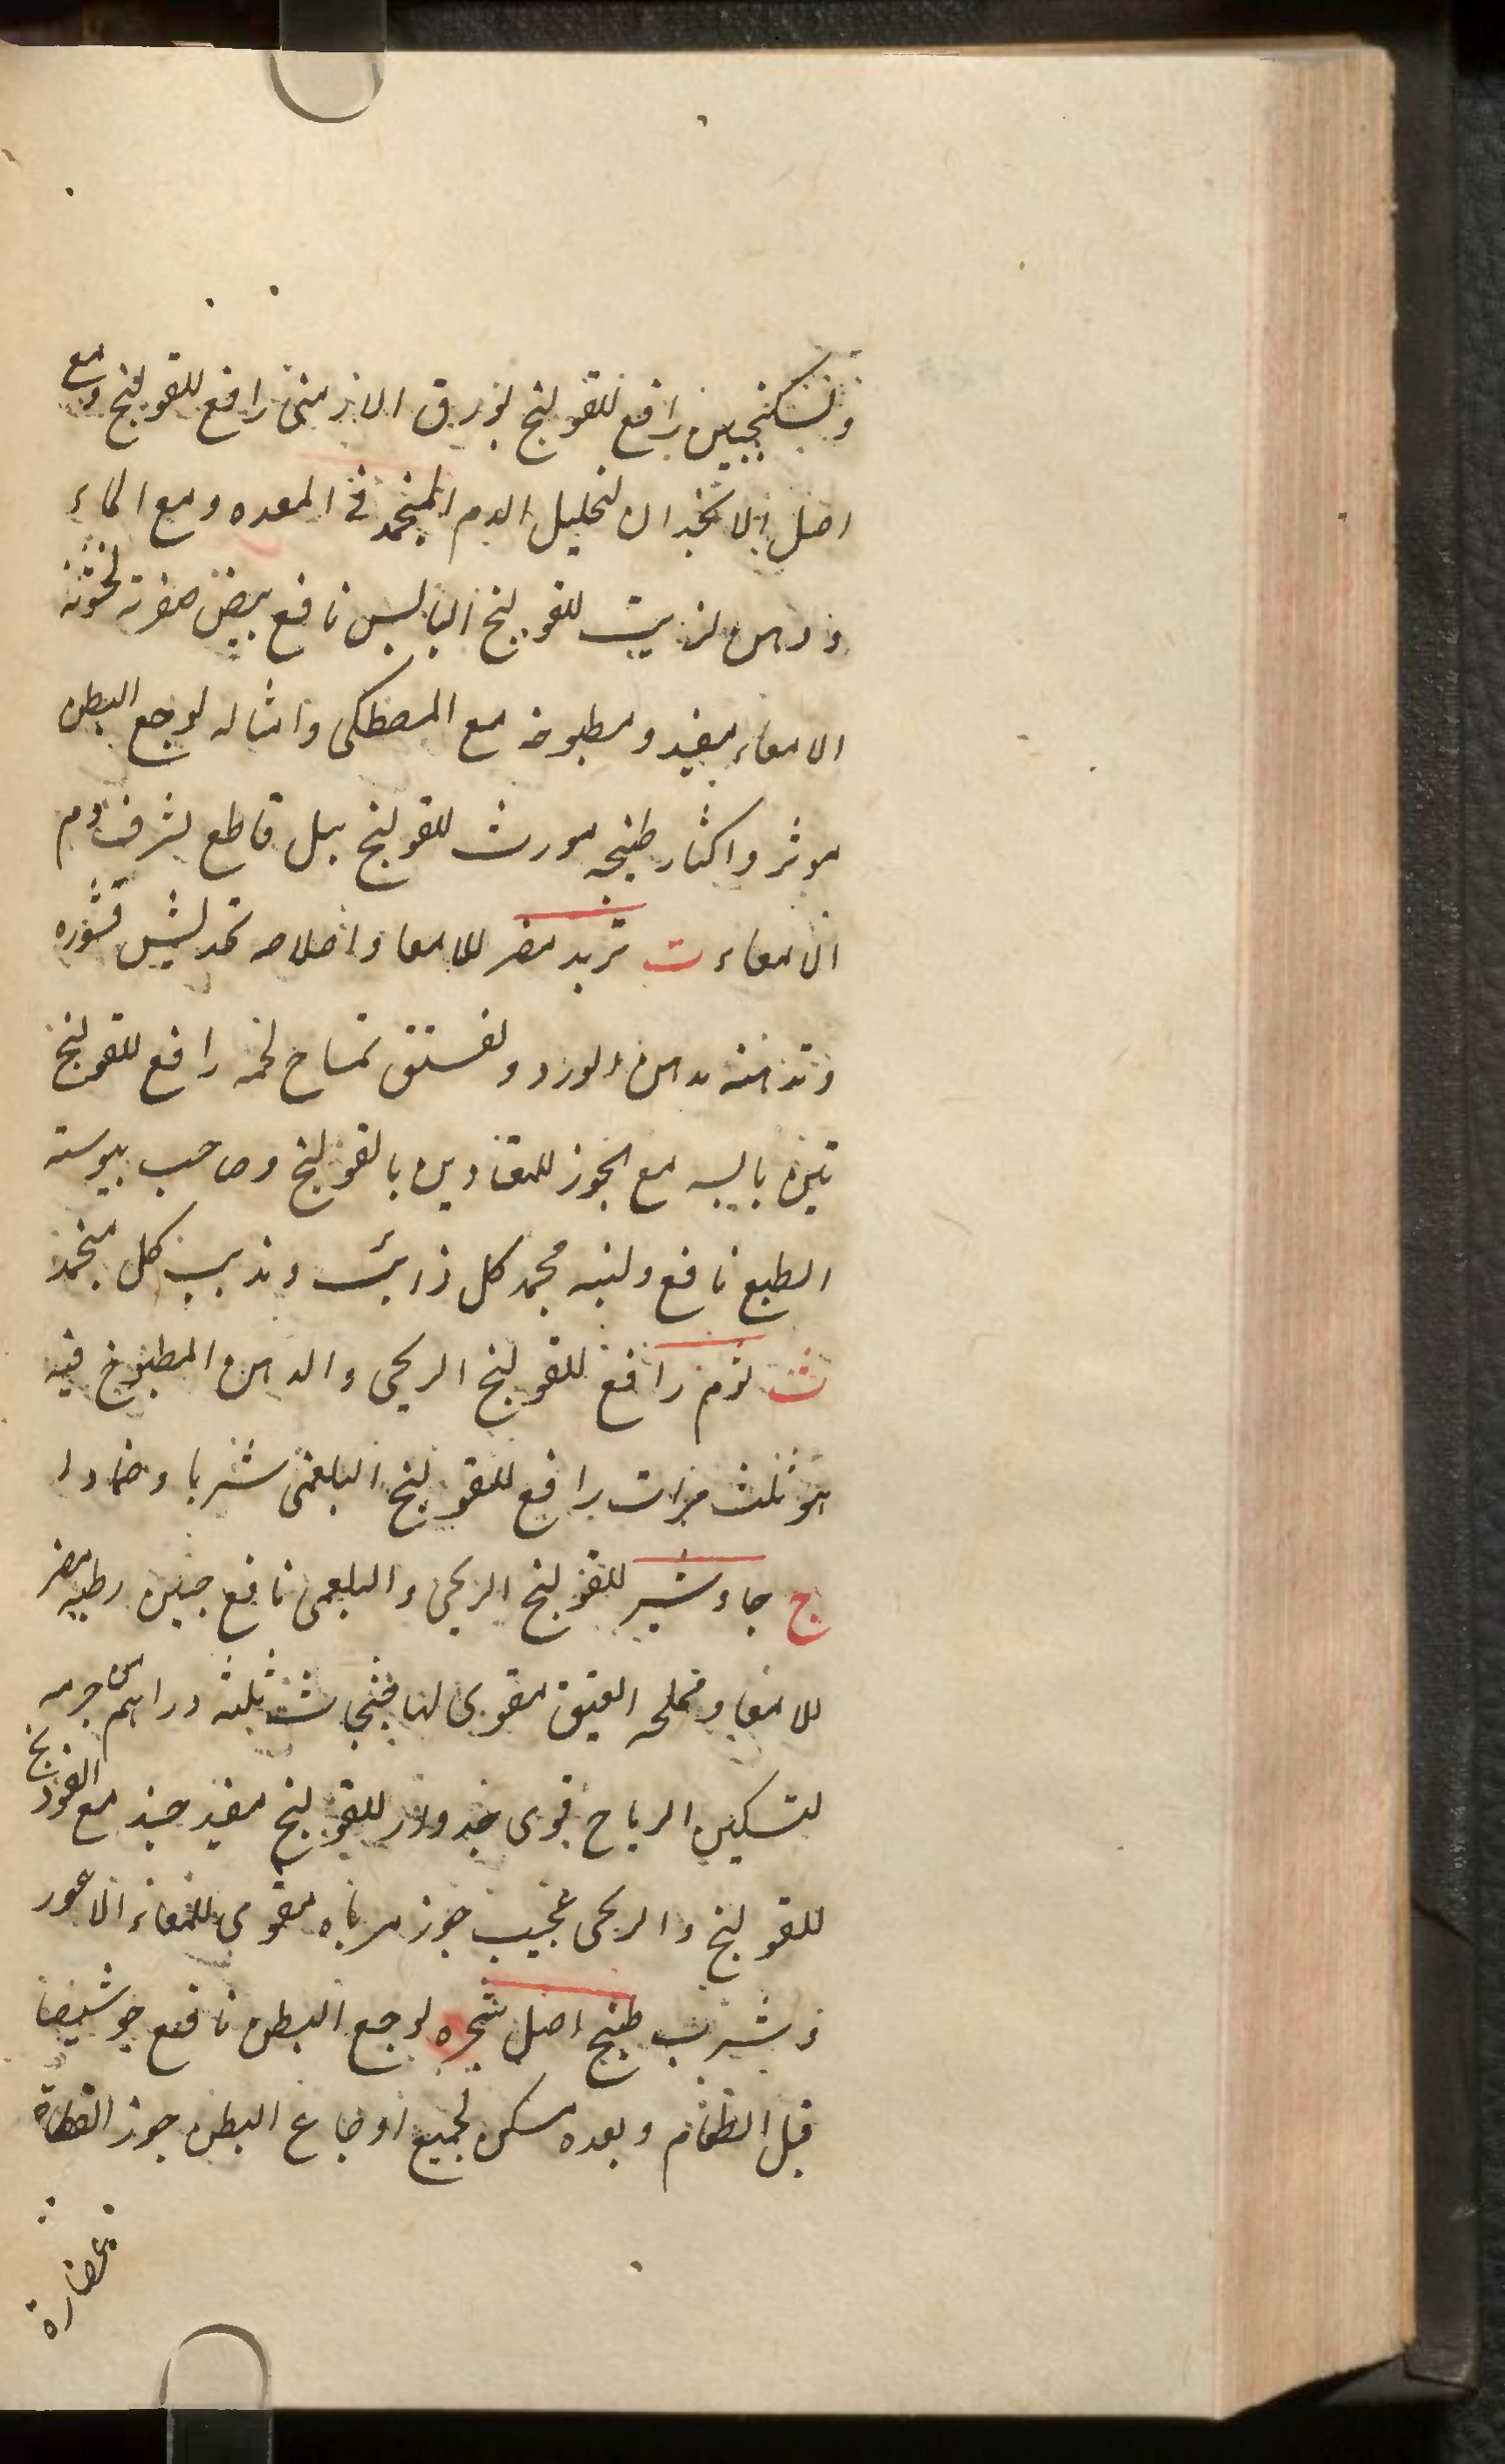 وبسكنجبين رافع للقولنج بورق الارمنى رافع للقولنج ومع
اصل الانجدان لتحليل الدم المنجمد فى المعده ومع الماء
ودهن لزيت للقولنج اليابس نافع بيض صفرته لخشونة
الامعاء مفيد ومطبوخه مع المصطكى وامثاله لوجع البطن
موثر واكثار طبخه مورث للقولنج بيل قاطع لنزف دم
الامعاء ت تربد مضر للامعا واصلاحه قشوره
وتدهينه بدهن الورد ولفستق تمساح لحمه رافع للقولنج
تين يابسه مع الجوز للمعتادين بالقولنج وصاحب يبوسته
الطبع نافع ولبنه مجمد كل ذائب ومذيب كل منجمد
ث ثوم رافع للقولنج الريحى والدهن المطبوخ فيه
هو ثلث مرات رافع للقولنج البلغمى شربا وضمادا
ج جاوشير للقولنج الريحى والبلغمى نافع جبن رطبه مضر
للامعا ومملحه العتيق مقوى لها ثلثه دراهم من جرمه
لتسكين الرياح قوى جدوار للقولنج مفيد جند مع الفودنج
للقولنج والريحى عجيب جوز مرباه مقوى للمعاء الاعور
وشرب طبخ اصل شجره لوجع البطن نافع جو شيصا
قبل الطعام وبعده مسكن لجميع اوجاع البطن جوز القطاة
عصارة